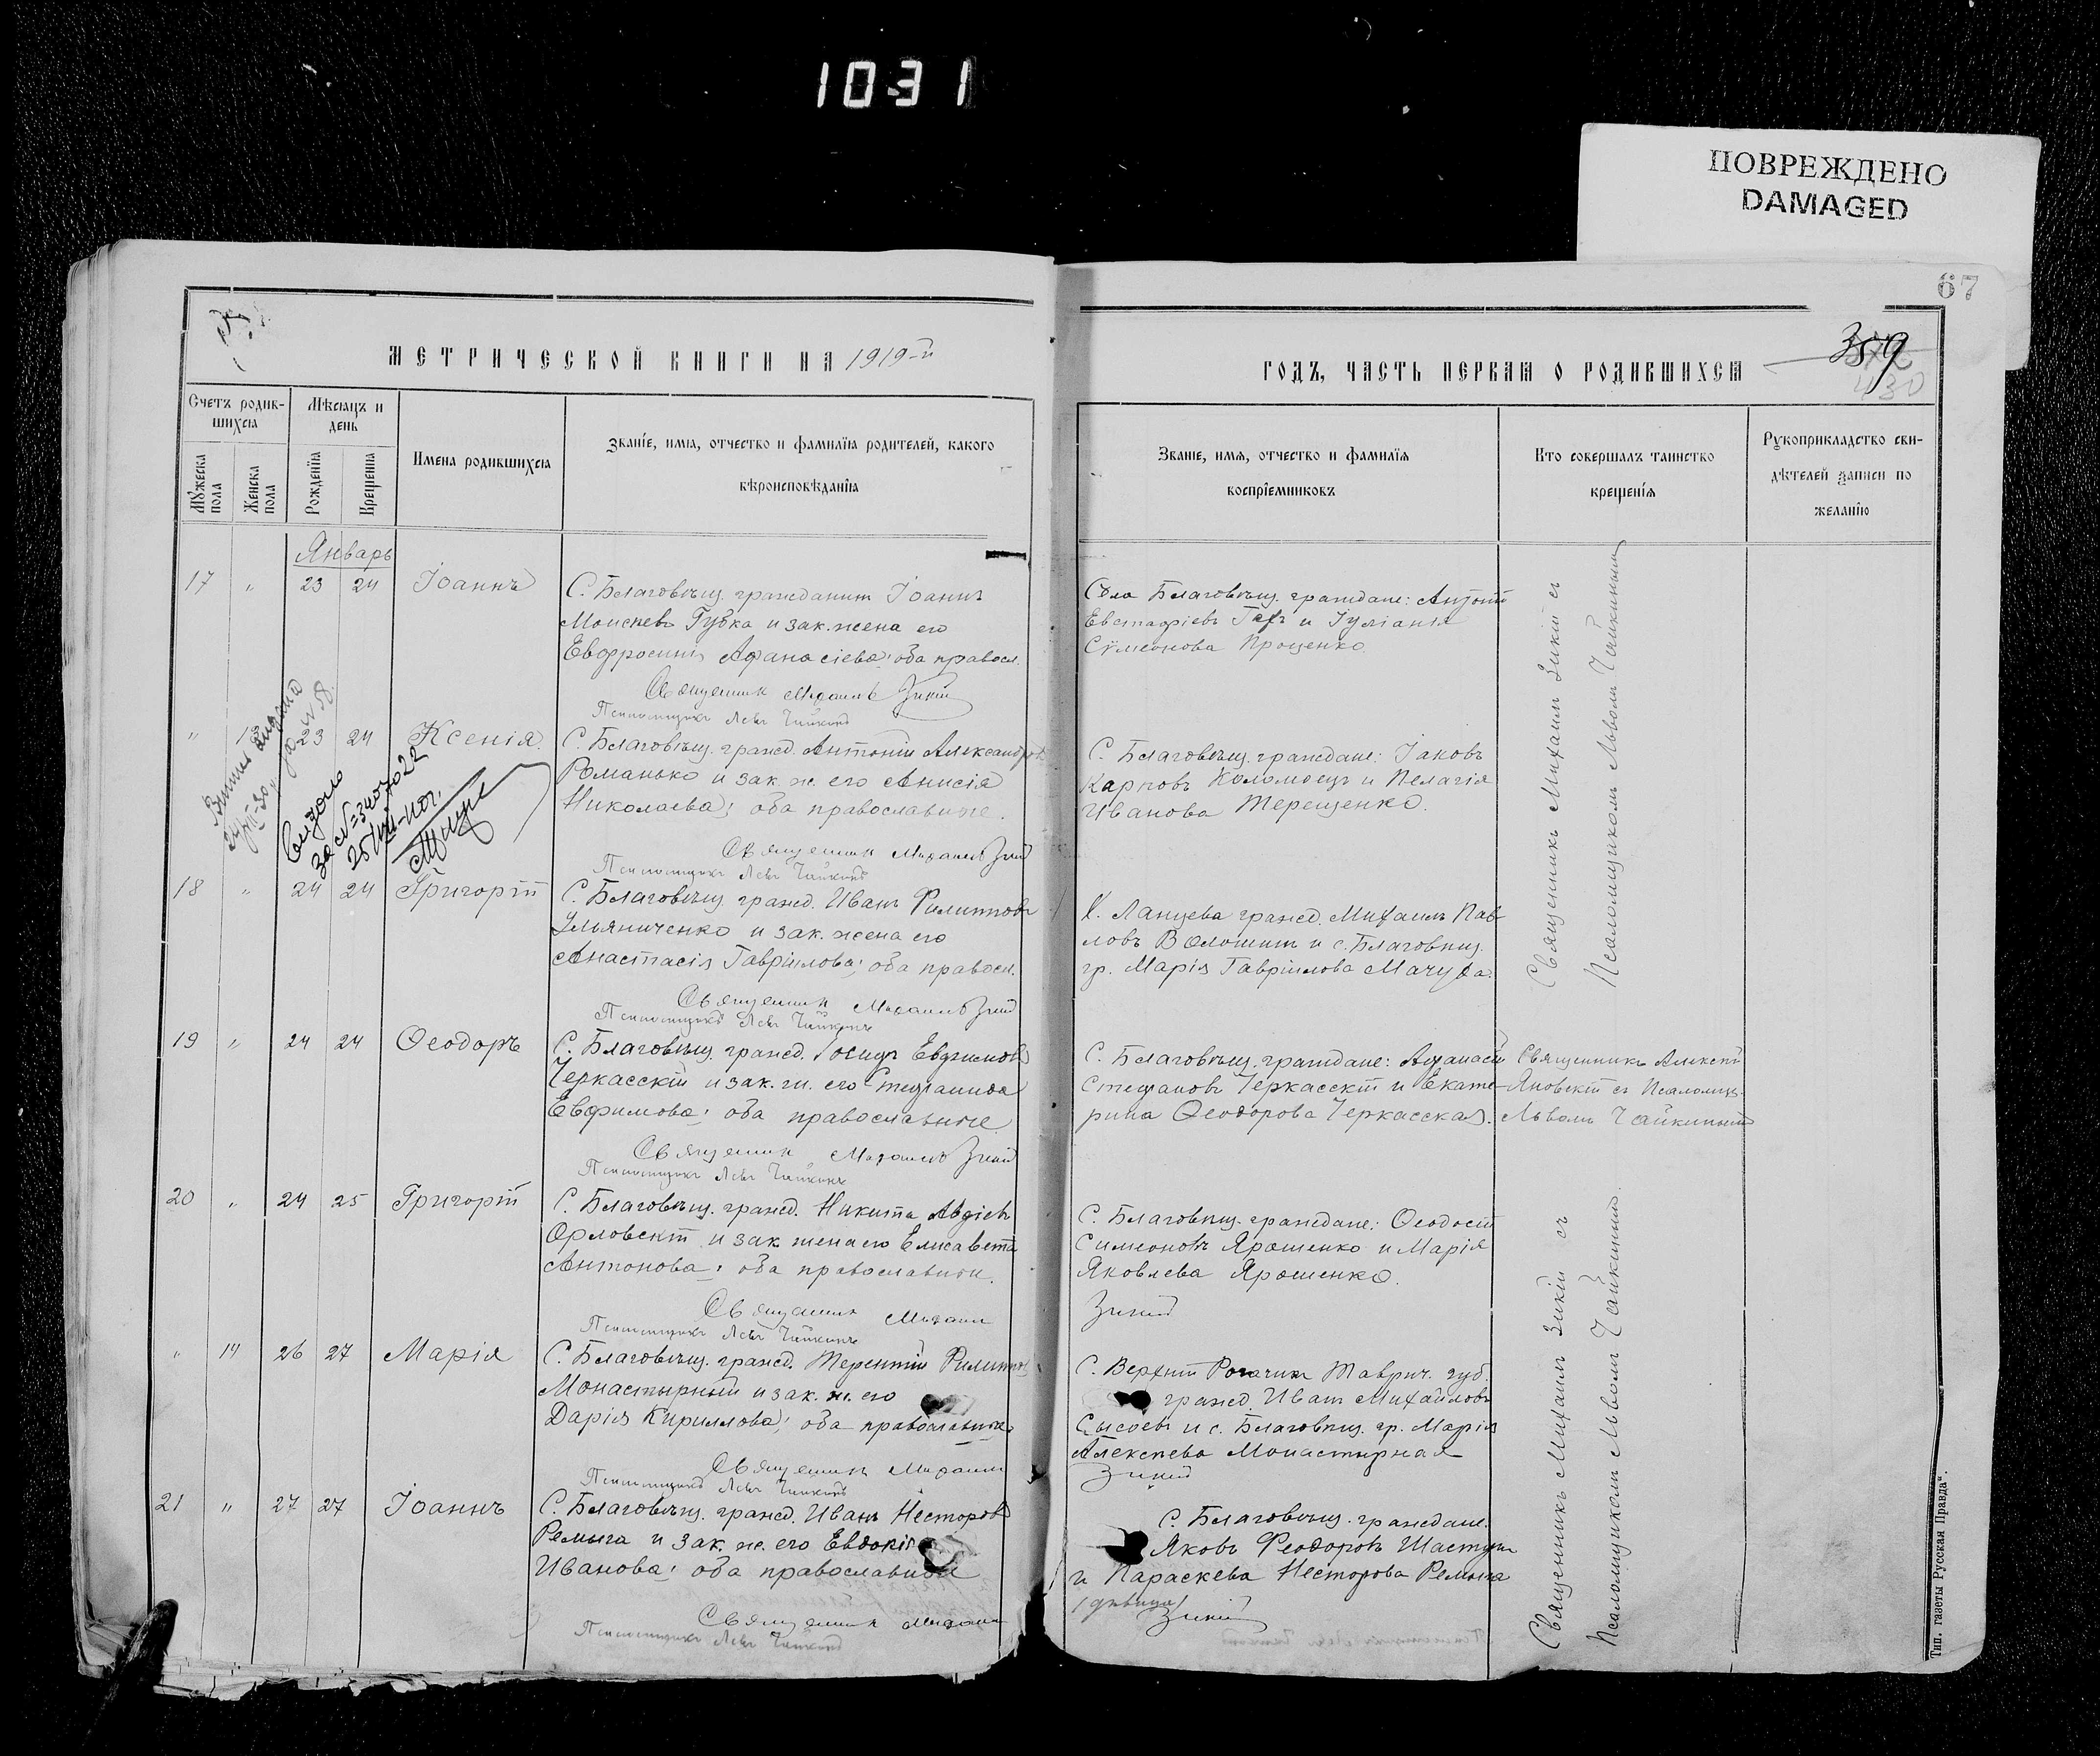 1031
ПОВРЕЖДЕНО
DAMAGED
67
359
430
МЕТРИЧЕСКОЙ КНИГИ НА 1919-й
ГОДЪ, ЧАСТЬ ПЕРВАѦ О РОДИВШИХСѦ
Счетъ родив-
шихсѧ
Мѣсѧцъ и
день
Мꙋжеска
пола
Женска
пола
Рожденїѧ
Крещенїѧ
Имена родившихсѧ
Званїе, имѧ, отчество и фамилїѧ родителей, какого
вѣроисповѣданїѧ
Званїе, имѧ, отчество и фамилїѧ
воспрїемниковъ
Кто совершалъ таинство
крещенїѧ
Рꙋкоприкладство сви-
дѣтелей записи по
желанїю
Январь
17 " 23 24 Іоаннъ
С. Благовѣщ. гражданинъ Іоаннъ
Моисеевъ Губка и зак. жена его
Евфросинія Афанасіева; оба правосл.
Священникъ Михаилъ Зикій
Псаломщикъ Левъ Чайкинъ
Села Благовѣщ. граждане: Антоній
Евстафіевъ и Іуліанія
Сѵмеонова Проценко.
Священникъ Михаилъ Зикій съ
Псаломщикомъ Львомъ Чайкинымъ
" 13 23 24 Ксенія.
С. Благовѣщ. гражд. Антоній Александровъ
Романько и зак. ж. его Анисія
Николаева; оба православные.
Священникъ Михаилъ Зикій
Псаломщикъ Левъ Чайкинъ
С. Благовѣщ. граждане: Іаковъ
Карповъ Коломоецъ и Пелагія
Иванова Терещенко.
18 " 24 24 Григорій
С. Благовѣщ. гражд. Иванъ Филипповъ
Ульяниченко и зак. жена его
Анастасія Гавріилова; оба правосл.
Священникъ Михаилъ Зикій
Псаломщикъ Левъ Чайкинъ
Х. Ланцева гражд. Михаилъ Пав-
ловъ Волошинъ и с. Благовѣщ.
гр. Марія Гавріилова Мачуха.
19 " 24 24 Ѳеодоръ
С. Благовѣщ. гражд. Іосифъ Евфимовъ
Черкасскій и зак. ж. его Стефанида
Евфимова; оба православные.
Священникъ Михаилъ Зикій
Псаломщикъ Левъ Чайкинъ
С. Благовѣщ. граждане: Афанасій
Стефановъ Черкасскій и Екате-
рина Ѳеодорова Черкасская.
Священникъ Алексій
Яновскій съ Псаломщ.
Львомъ Чайкинымъ
20 " 24 25 Григорій
С. Благовѣщ. гражд. Никита Авдіевъ
Орловскій и зак. жена его Елисавета
Антонова; оба православные.
Священникъ Михаилъ
Псаломщикъ Левъ Чайкинъ
С. Благовѣщ. граждане: Ѳеодосій
Симеоновъ Ярошенко и Марія
Яковлева Ярошенко.
Зикій
Священникъ Михаилъ Зикій съ
Псаломщикомъ Львомъ Чайкинымъ.
" 14 26 27 Марія
С. Благовѣщ. гражд. Терентій Филипповъ
Монастырный и зак. ж. его
Дарія Кириллова; оба православные
Священникъ Михаилъ
Псаломщикъ Левъ Чайкинъ
С. Верхній Рогачикъ Таврич. губ.
гражд. Иванъ Михайловъ
Сысоевъ и с. Благовѣщ. гр. Марія
Алексѣева Монастырная
Зикій
21 " 27 27 Іоаннъ
С. Благовѣщ. гражд. Иванъ Несторовъ
Ремыга и зак. ж. его Евдокія
Иванова; оба православные
Священникъ Михаилъ
Псаломщикъ Левъ Чайкинъ
С. Благовѣщ. граждане.
Яковъ Феодоровъ Шастунъ
и Параскева Несторова Ремыга
/дѣвица/
Зикій
Тип. газеты Русская Правда".